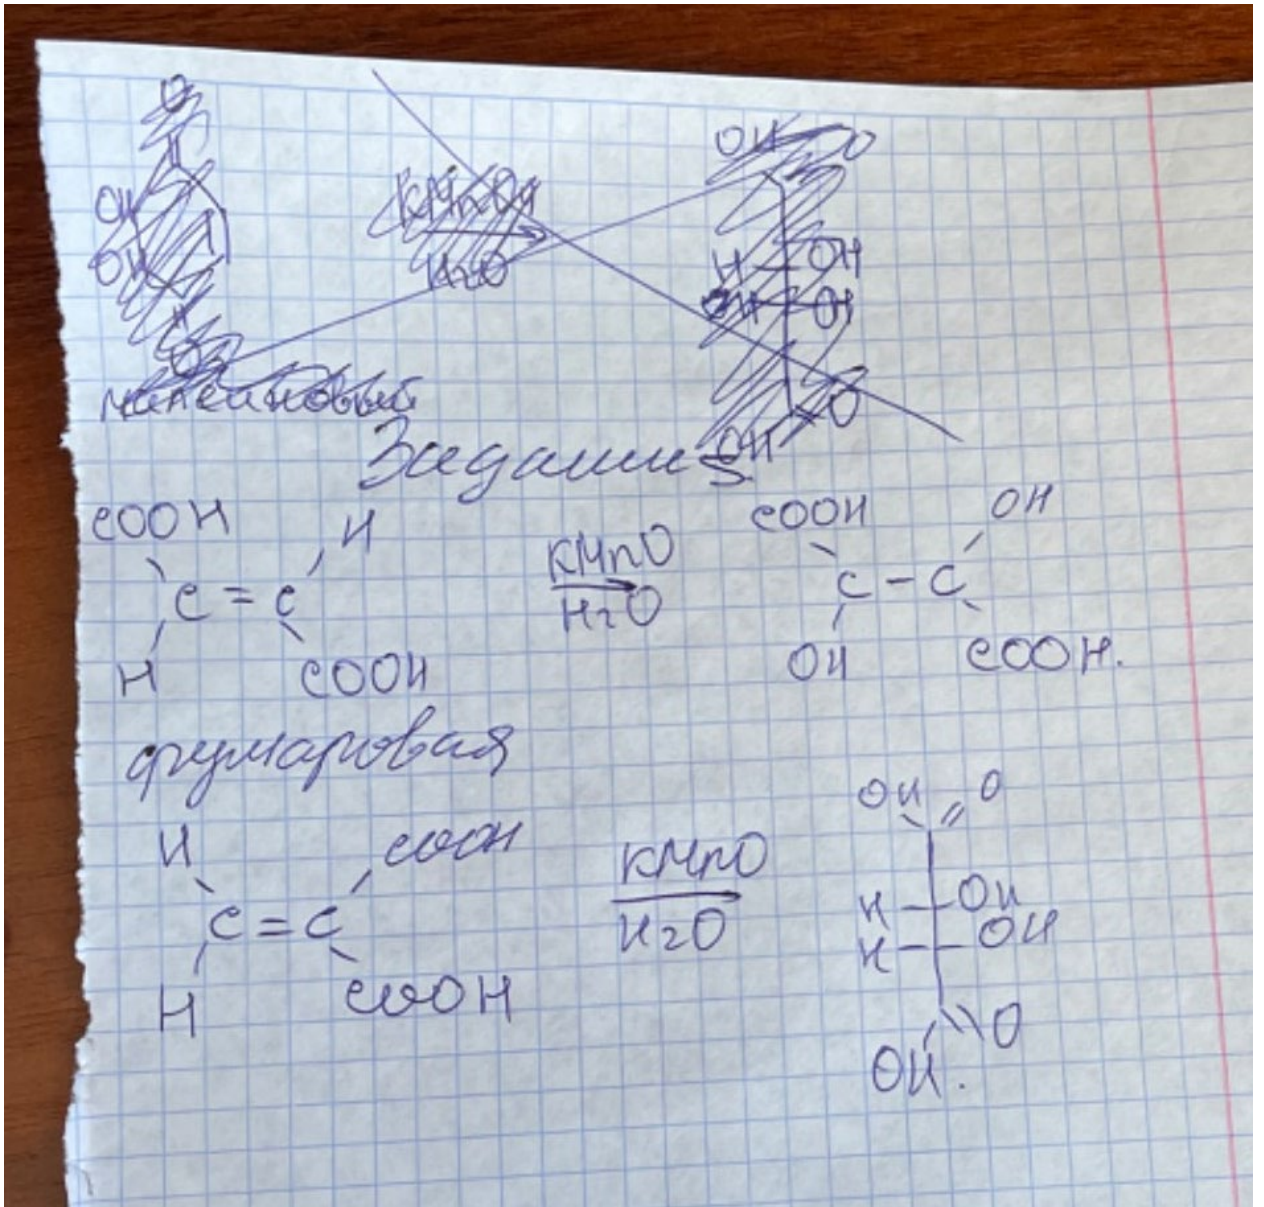 O
OH
OH
O
KMnO4
H2O
OH O
H OH
OH
O
OH
малеиновый
Задание 5
COOH H
C = C
H COOH
KMnO
H2O
COOH OH
C - C
OH COOH.
фумаровая
H COOH
C = C
H COOH
KMnO
H2O
OH O
H OH
H OH
O
OH.